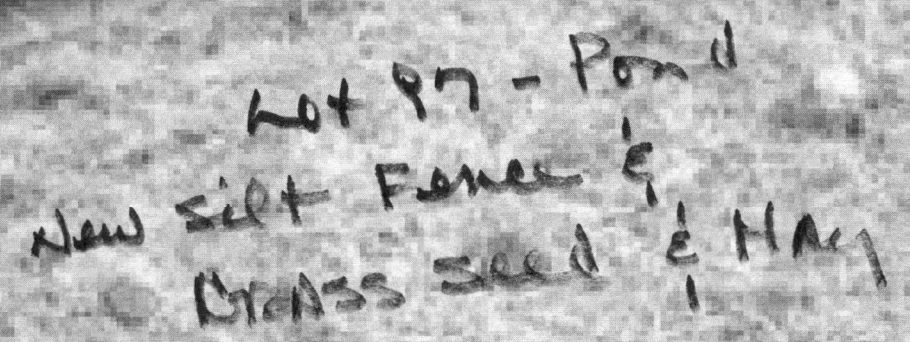 Lot 97 - Pond
New Silt Fence &
Grass seed & HAy